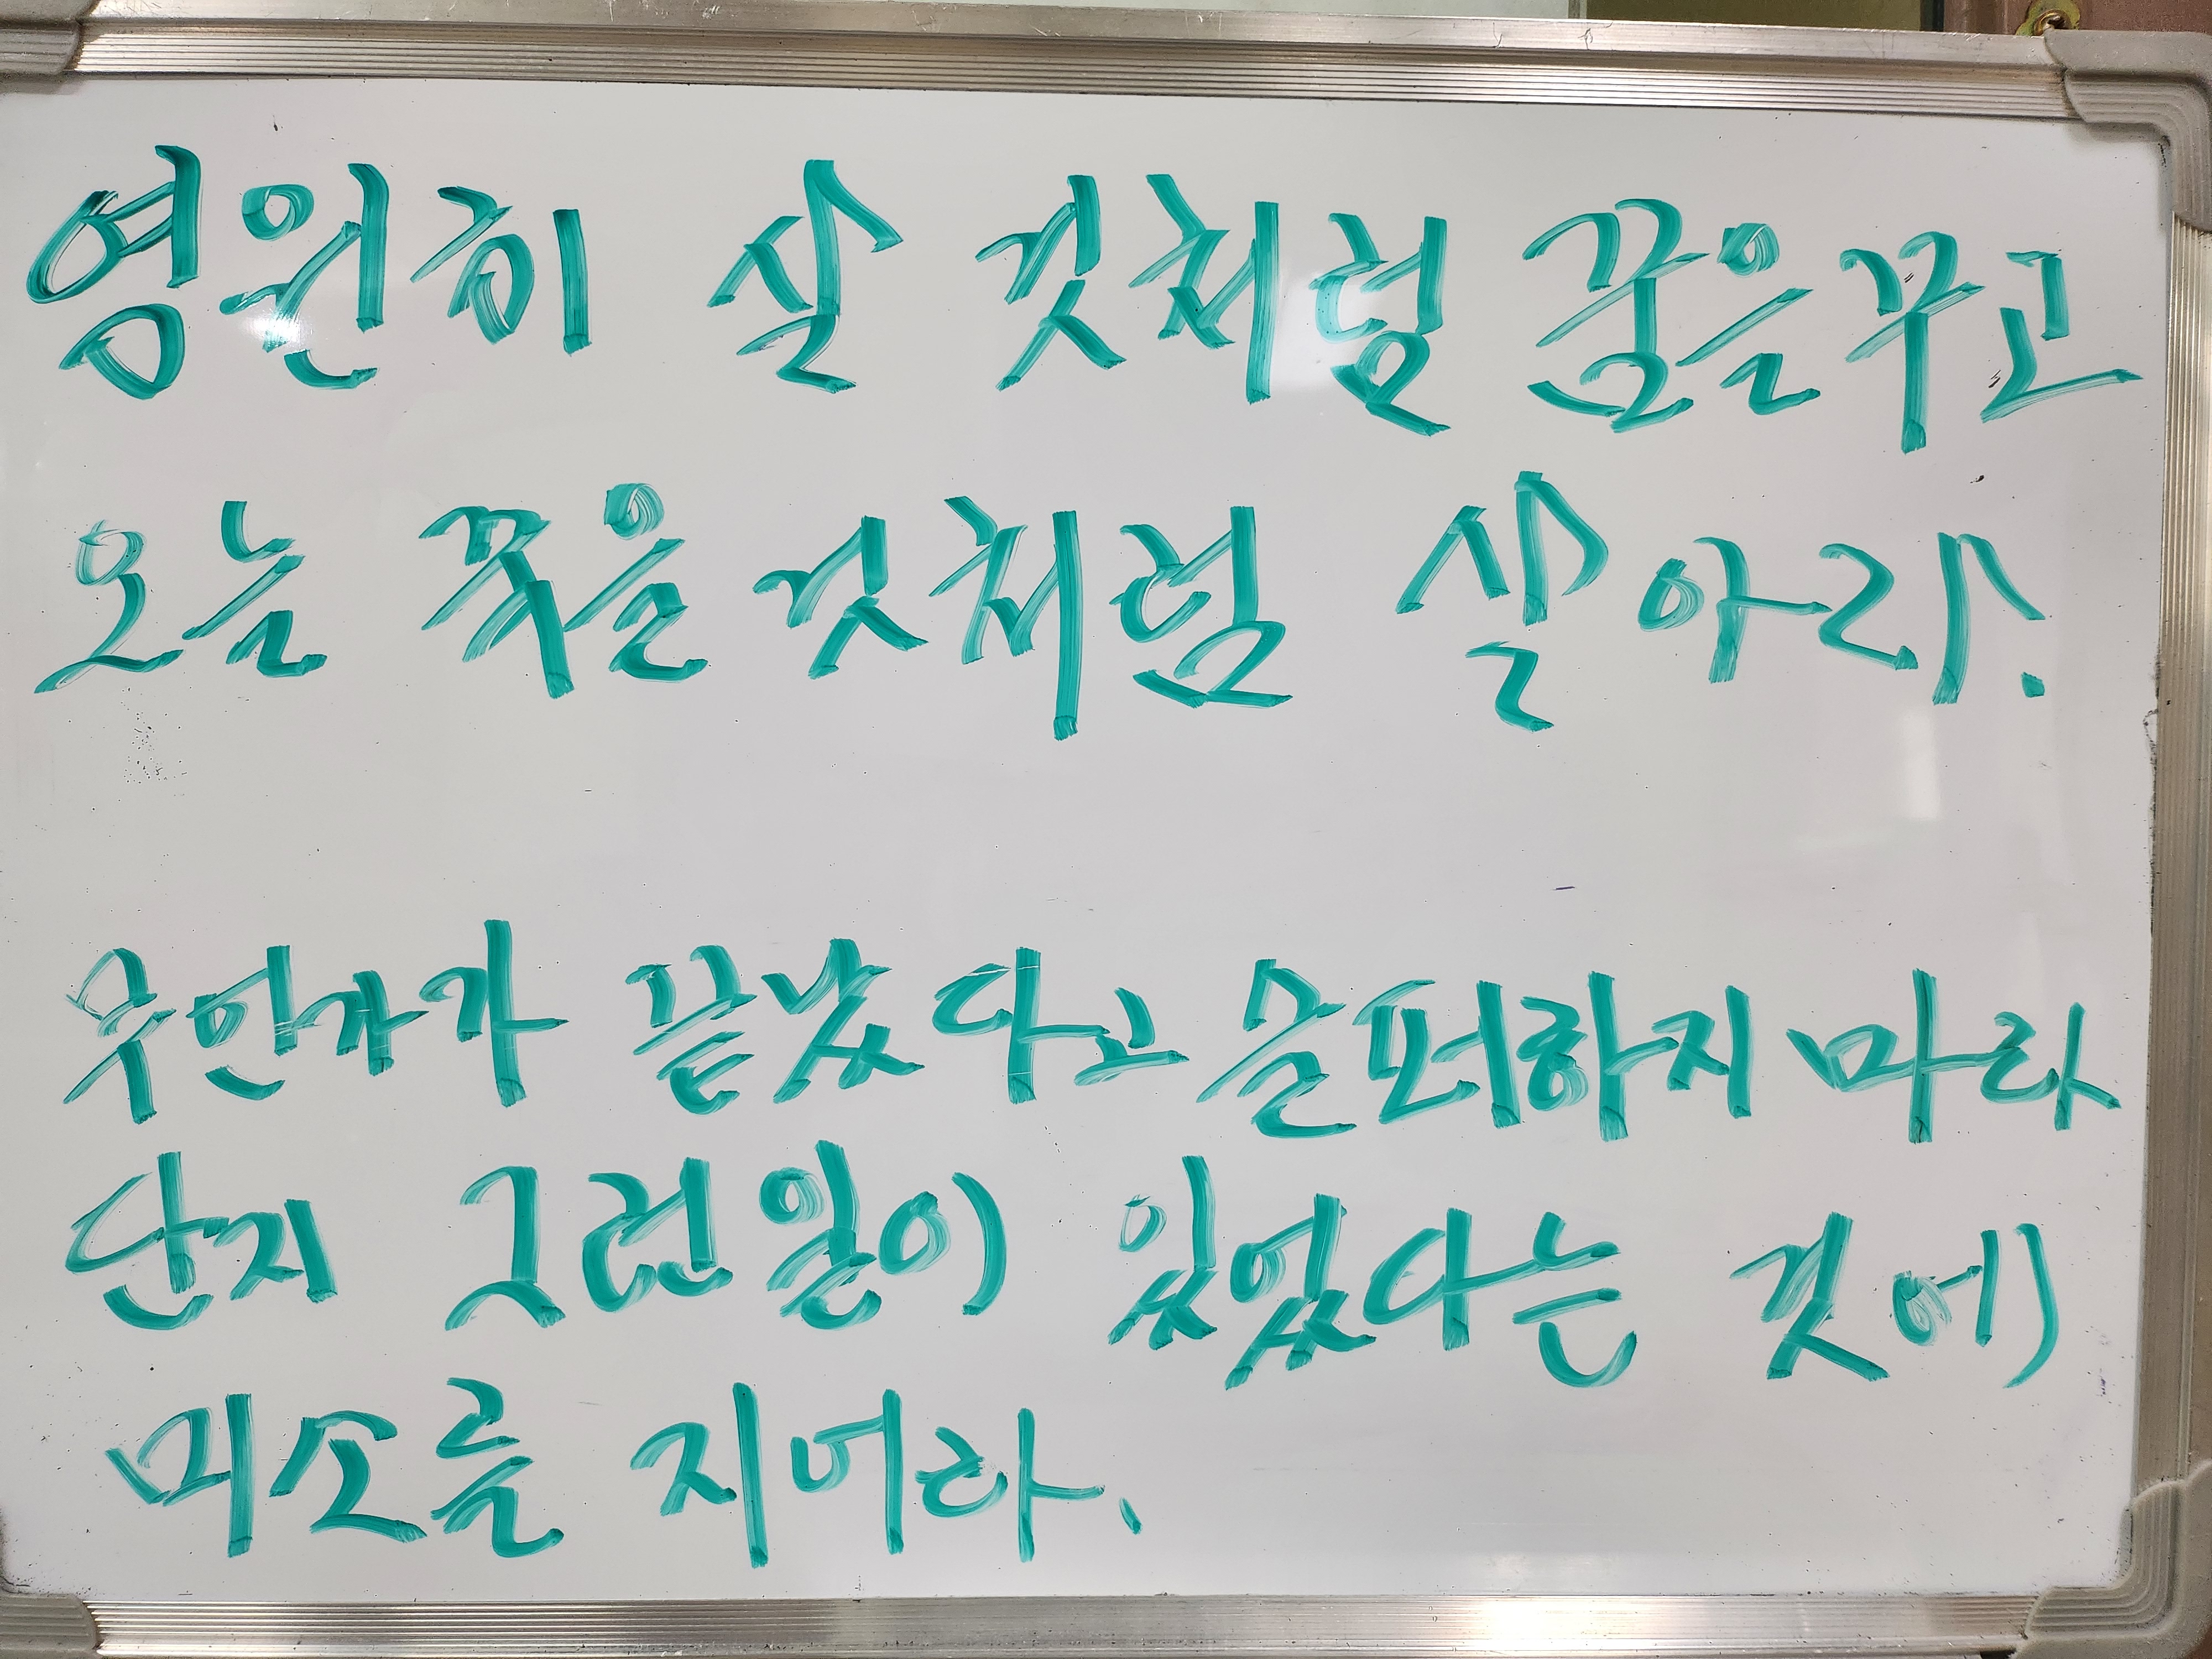 영원히 살 것처럼 꿈을꾸고
오늘 죽을 것처럼 살아라.
무언가가 끝났다고 슬퍼하지 마라
단지 그런일이 있었다는 것에
미소를 지어라.